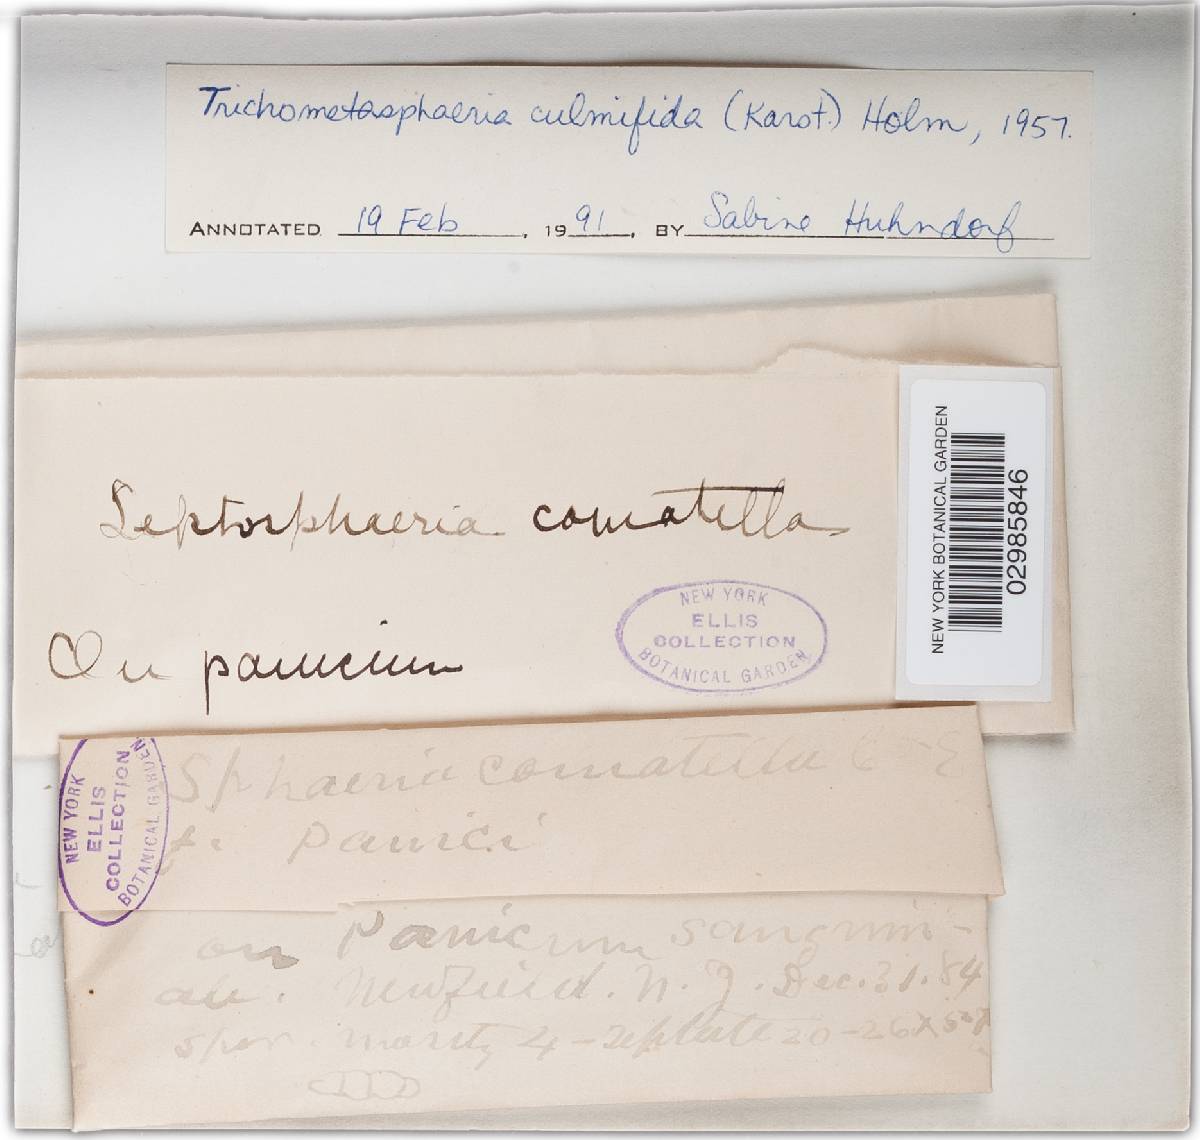 Trichometasphaeria culmifida (Karst.) Holm, 1957.
ANNOTATED 19 Feb, 1991, BY Sabine Huhndorf
Leptosphaeria comatella
On panicum
NEW YORK
ELLIS
COLLECTION
BOTANICAL GARDEN
NEW YORK BOTANICAL GARDEN
02985846
NEW YORK
ELLIS
COLLECTION
BOTANICAL GARDEN
Sphaeria comatella C - E
f. panici
on Panicum sanguin-
ale. Newfield. N. J. Dec. 31. 84
spor. mostly 4-septate 20-26 x